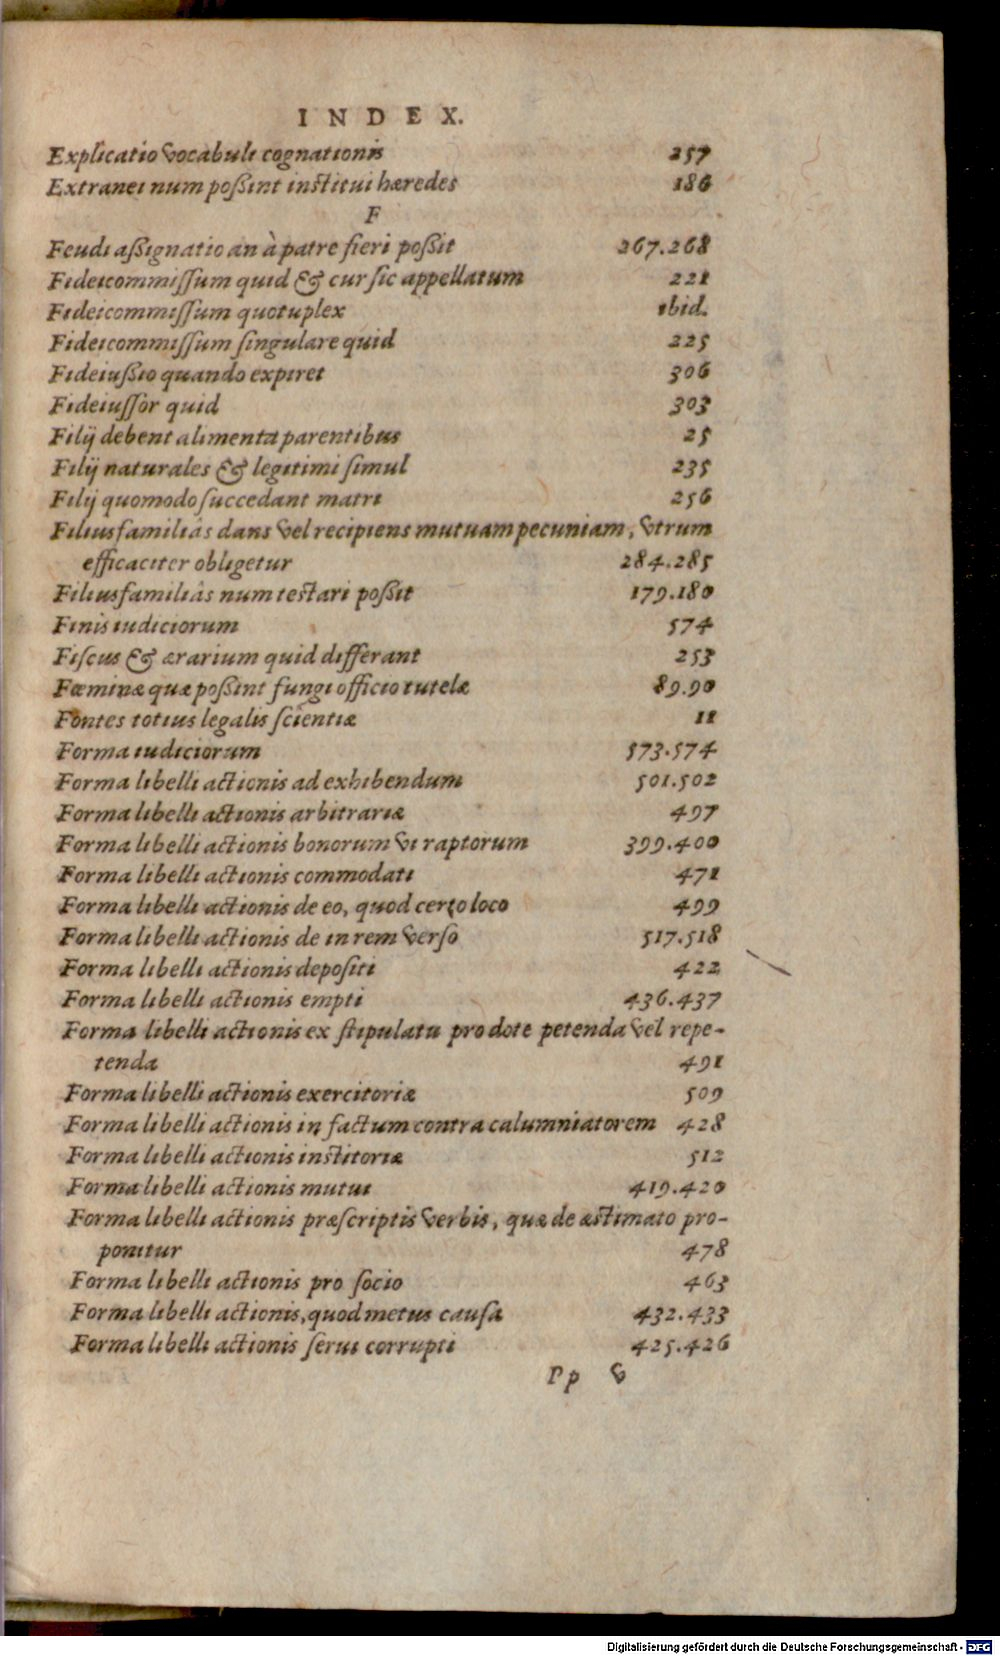 INDEX.
Explicatio vocabuli cognationis 257
Extranei num poßint institui hæredes 186
F
Feudi aßignatio an à patre fieri poßit 267.268
Fideicommiſſum quid & cur ſic appellatum 221
Fideicommiſſum quotuplex ibid.
Fideicommiſſum ſingulare quid 225
Fideiußio quando expiret 306
Fideiuſſor quid 303
Filij debent alimenta parentibus 25
Filij naturales & legitimi ſimul 235
Filij quomodo ſuccedant matri 256
Filiusfamiliâs dans vel recipiens mutuam pecuniam, vtrum
efficaciter obligetur 284.285
Filiusfamiliâs num testari poßit 179.180
Finis iudiciorum 574
Fiſcus & ærarium quid differant 253
Fœminæ quæ poßint fungi officio tutelæ 89.90
Fontes totius legalis ſcientiæ 11
Forma iudiciorum 573.574
Forma libelli actionis ad exhibendum 501.502
Forma libelli actionis arbitrariæ 497
Forma libelli actionis bonorum vi raptorum 399.400
Forma libelli actionis commodati 471
Forma libelli actionis de eo, quod certo loco 499
Forma libelli actionis de in rem verſo 517.518
Forma libelli actionis depoſiti 422
Forma libelli actionis empti 436.437
Forma libelli actionis ex ſtipulatu pro dote petenda vel repe-
tenda 491
Forma libelli actionis exercitoriæ 509
Forma libelli actionis in factum contra calumniatorem 428
Forma libelli actionis institoriæ 512
Forma libelli actionis mutui 419.420
Forma libelli actionis præſcriptis verbis, quæ de æstimato pro-
ponitur 478
Forma libelli actionis pro ſocio 463
Forma libelli actionis, quod metus cauſa 432.433
Forma libelli actionis ſerui corrupti 425.426
Pp v
Digitalisierung gefördert durch die Deutsche Forschungsgemeinschaft - DFG